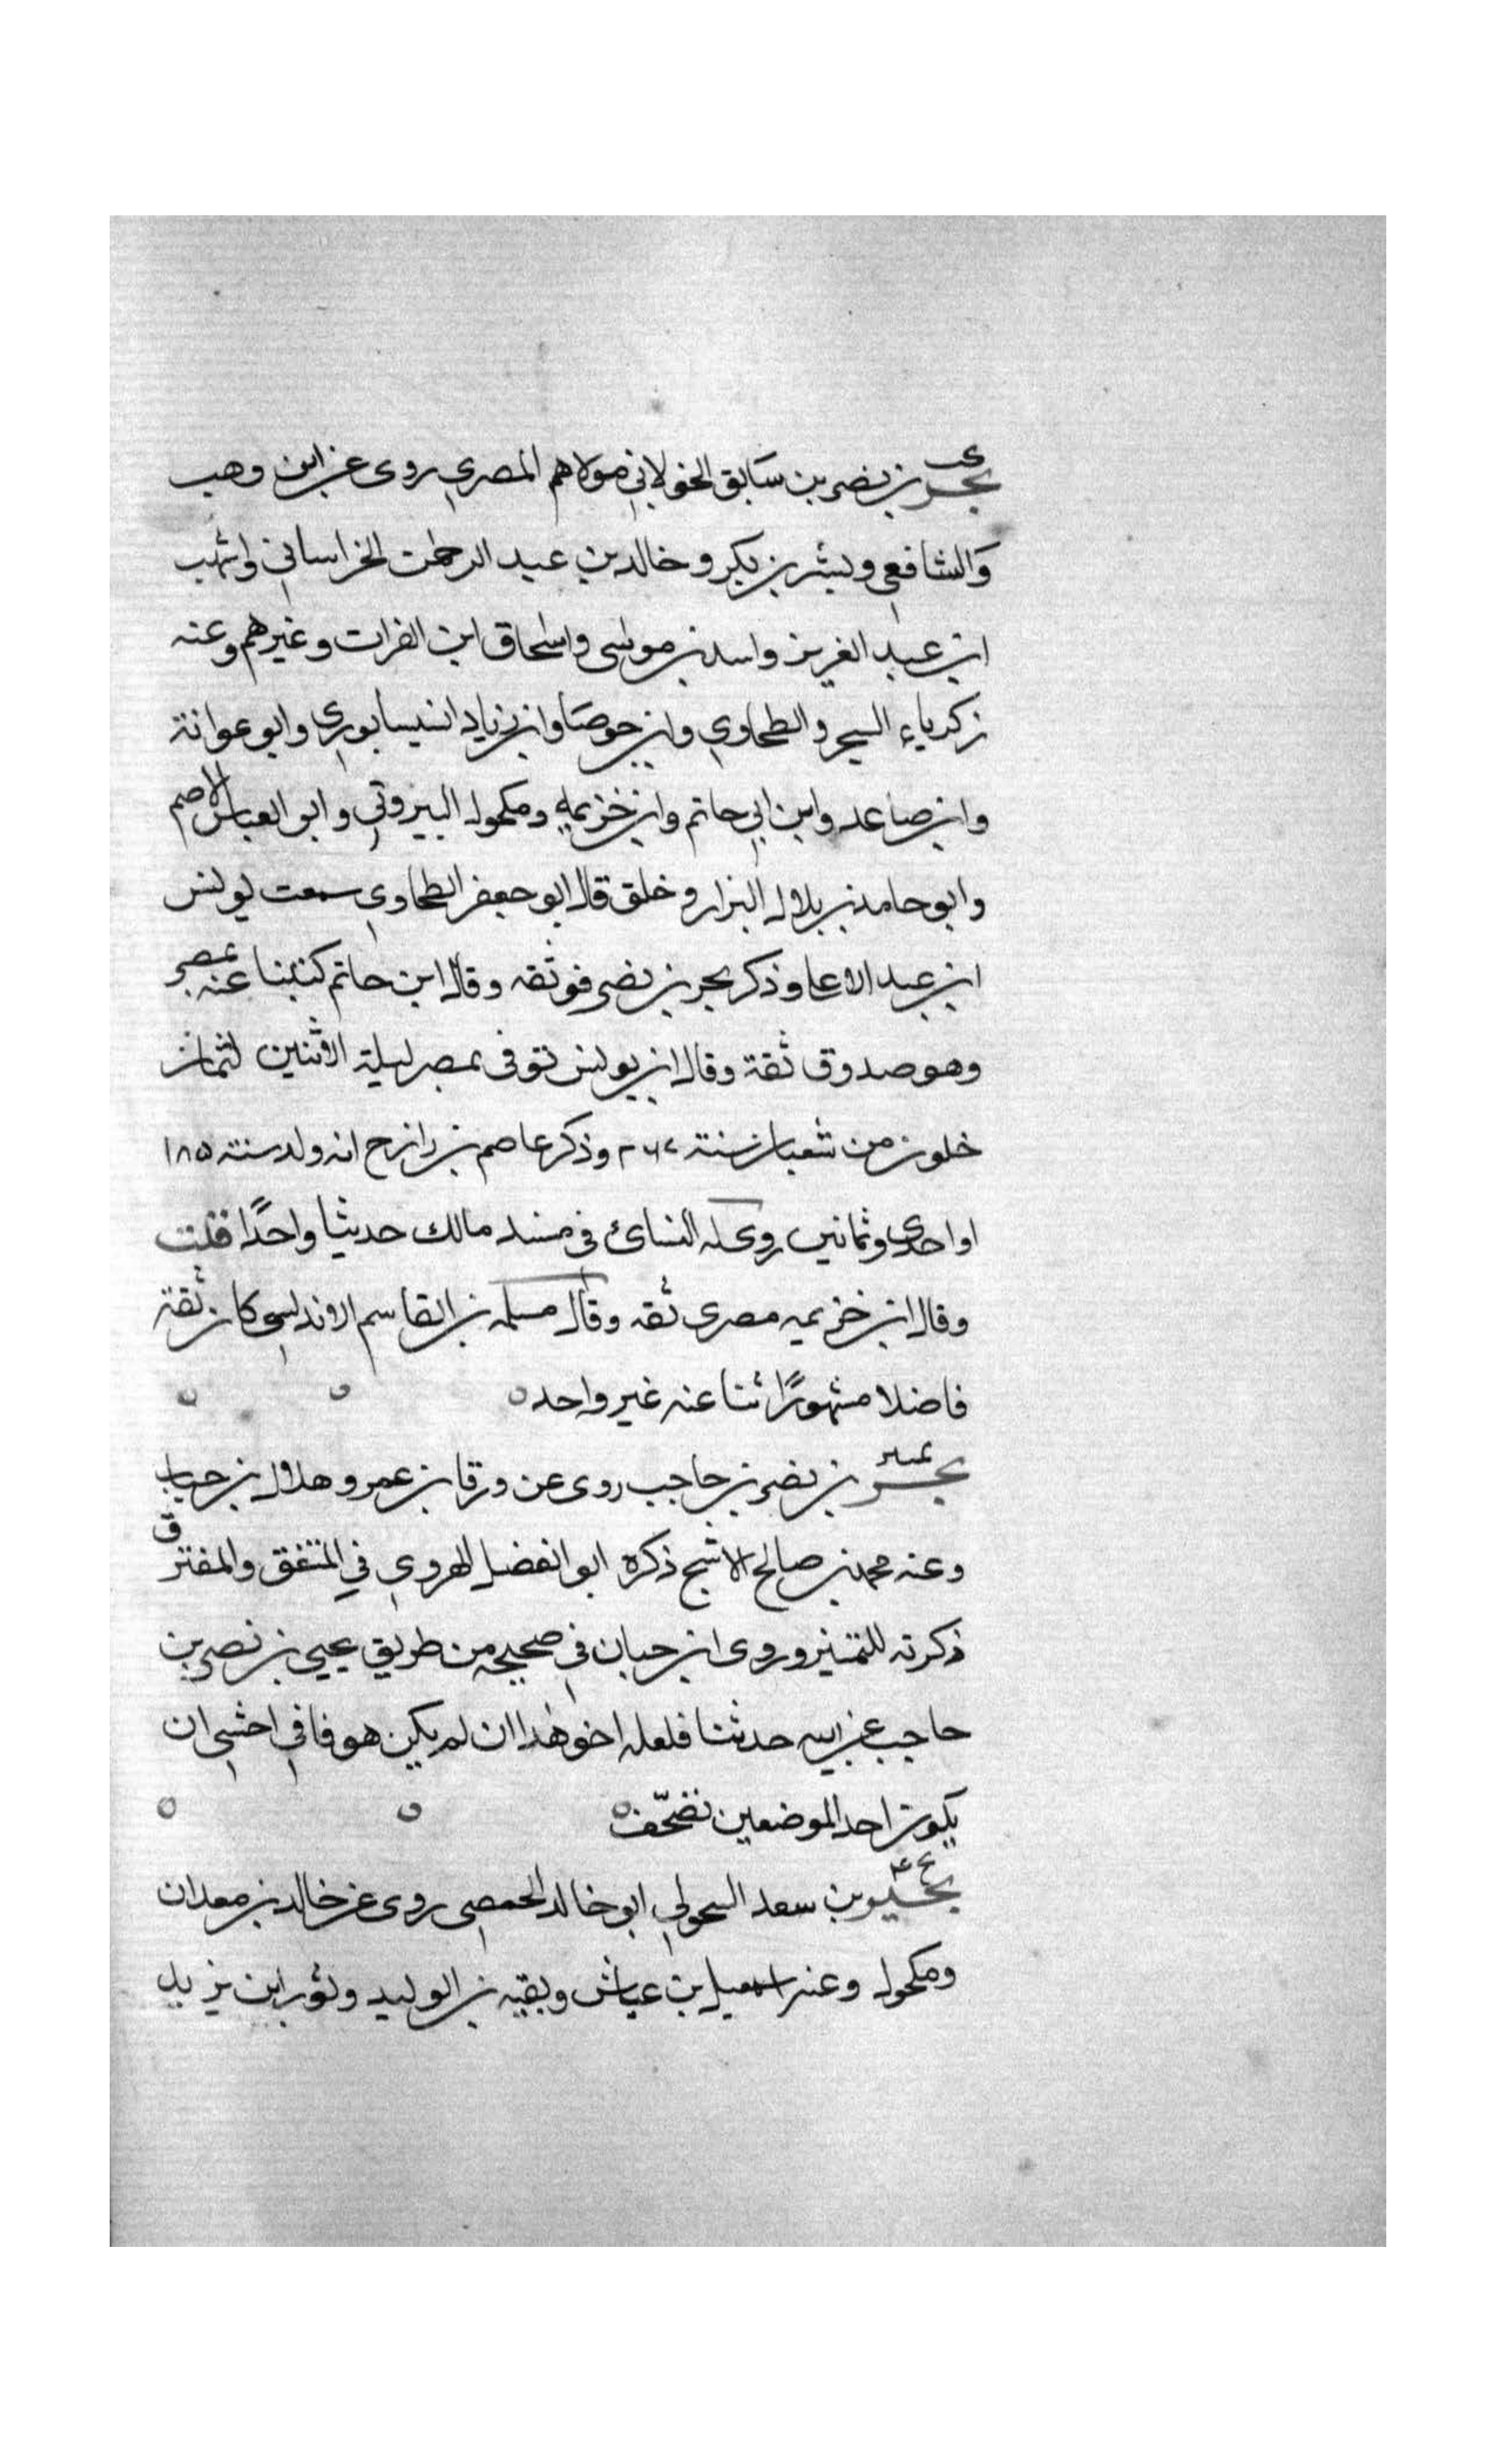 كن
بحر بن نصر بن سَابق الخولاني مولاهم المصري روى عن ابن وهب
وَالشافعي وبشر بن بكر وخالد بن عبد الرحمن الخراساني واشهب
ابن عبد العزيز واسد بن موسى واسحاق ابن الفرات وغيرهم وعنه
زكرياء السجزي والطحاوي وابن جوصَا وابن زياد النيسابوري وابو عوانة
وابن صاعد وابن ابي حاتم وابن خزيمة ومكحول البيروتي وابو العباس الاصم
وابو حامد بن بلال البزار وخلق قال ابو جعفر الطحاوي سمعت يونس
ابن عبد الاعلى وذكر بحر بن نصر فوثقه وقال ابن حاتم كتبنا عنه بمصر
وهو صدوق ثقة وقال ابن يونس توفى بمصر ليلة الاثنين لثمان
خلون من شعبان سنة ٢٦٧ وذكر عاصم بن رازح انه ولد سنة ١٨٥
او احدى وثمانين روى له النسائ في مسند مالك حديثا واحدًا قلت
وقال ابن خزيمه مصرى ثقه وقال مسلمه بن القاسم الاندلسي كان ثقة
فاضلا مشهورًا ثنا عنه غير واحد ه
تمييز
بحر بن نصر بن حاجب روى عن ورقا بن عمر وهلال بن خباب
وعنه محمد بن صالح الاشج ذكره ابو الفضل الهروي في المتفق والمفترق
ذكرته للتمييز وروى ابن حبان في صحيحه من طريق يحيى بن نصر بن
حاجب عن ابيه حدثنا فلعله اخو هذا ان لم يكن هو فاني اخشى ان
يكون احد الموضعين تصحّف ه
بخ ٤
بحير بن سعد السحولي ابو خالد الحمصي روى عن خالد بن معدان
ومكحول وعنه اسمعيل بن عياش وبقيه بن الوليد وثور ابن يزيد